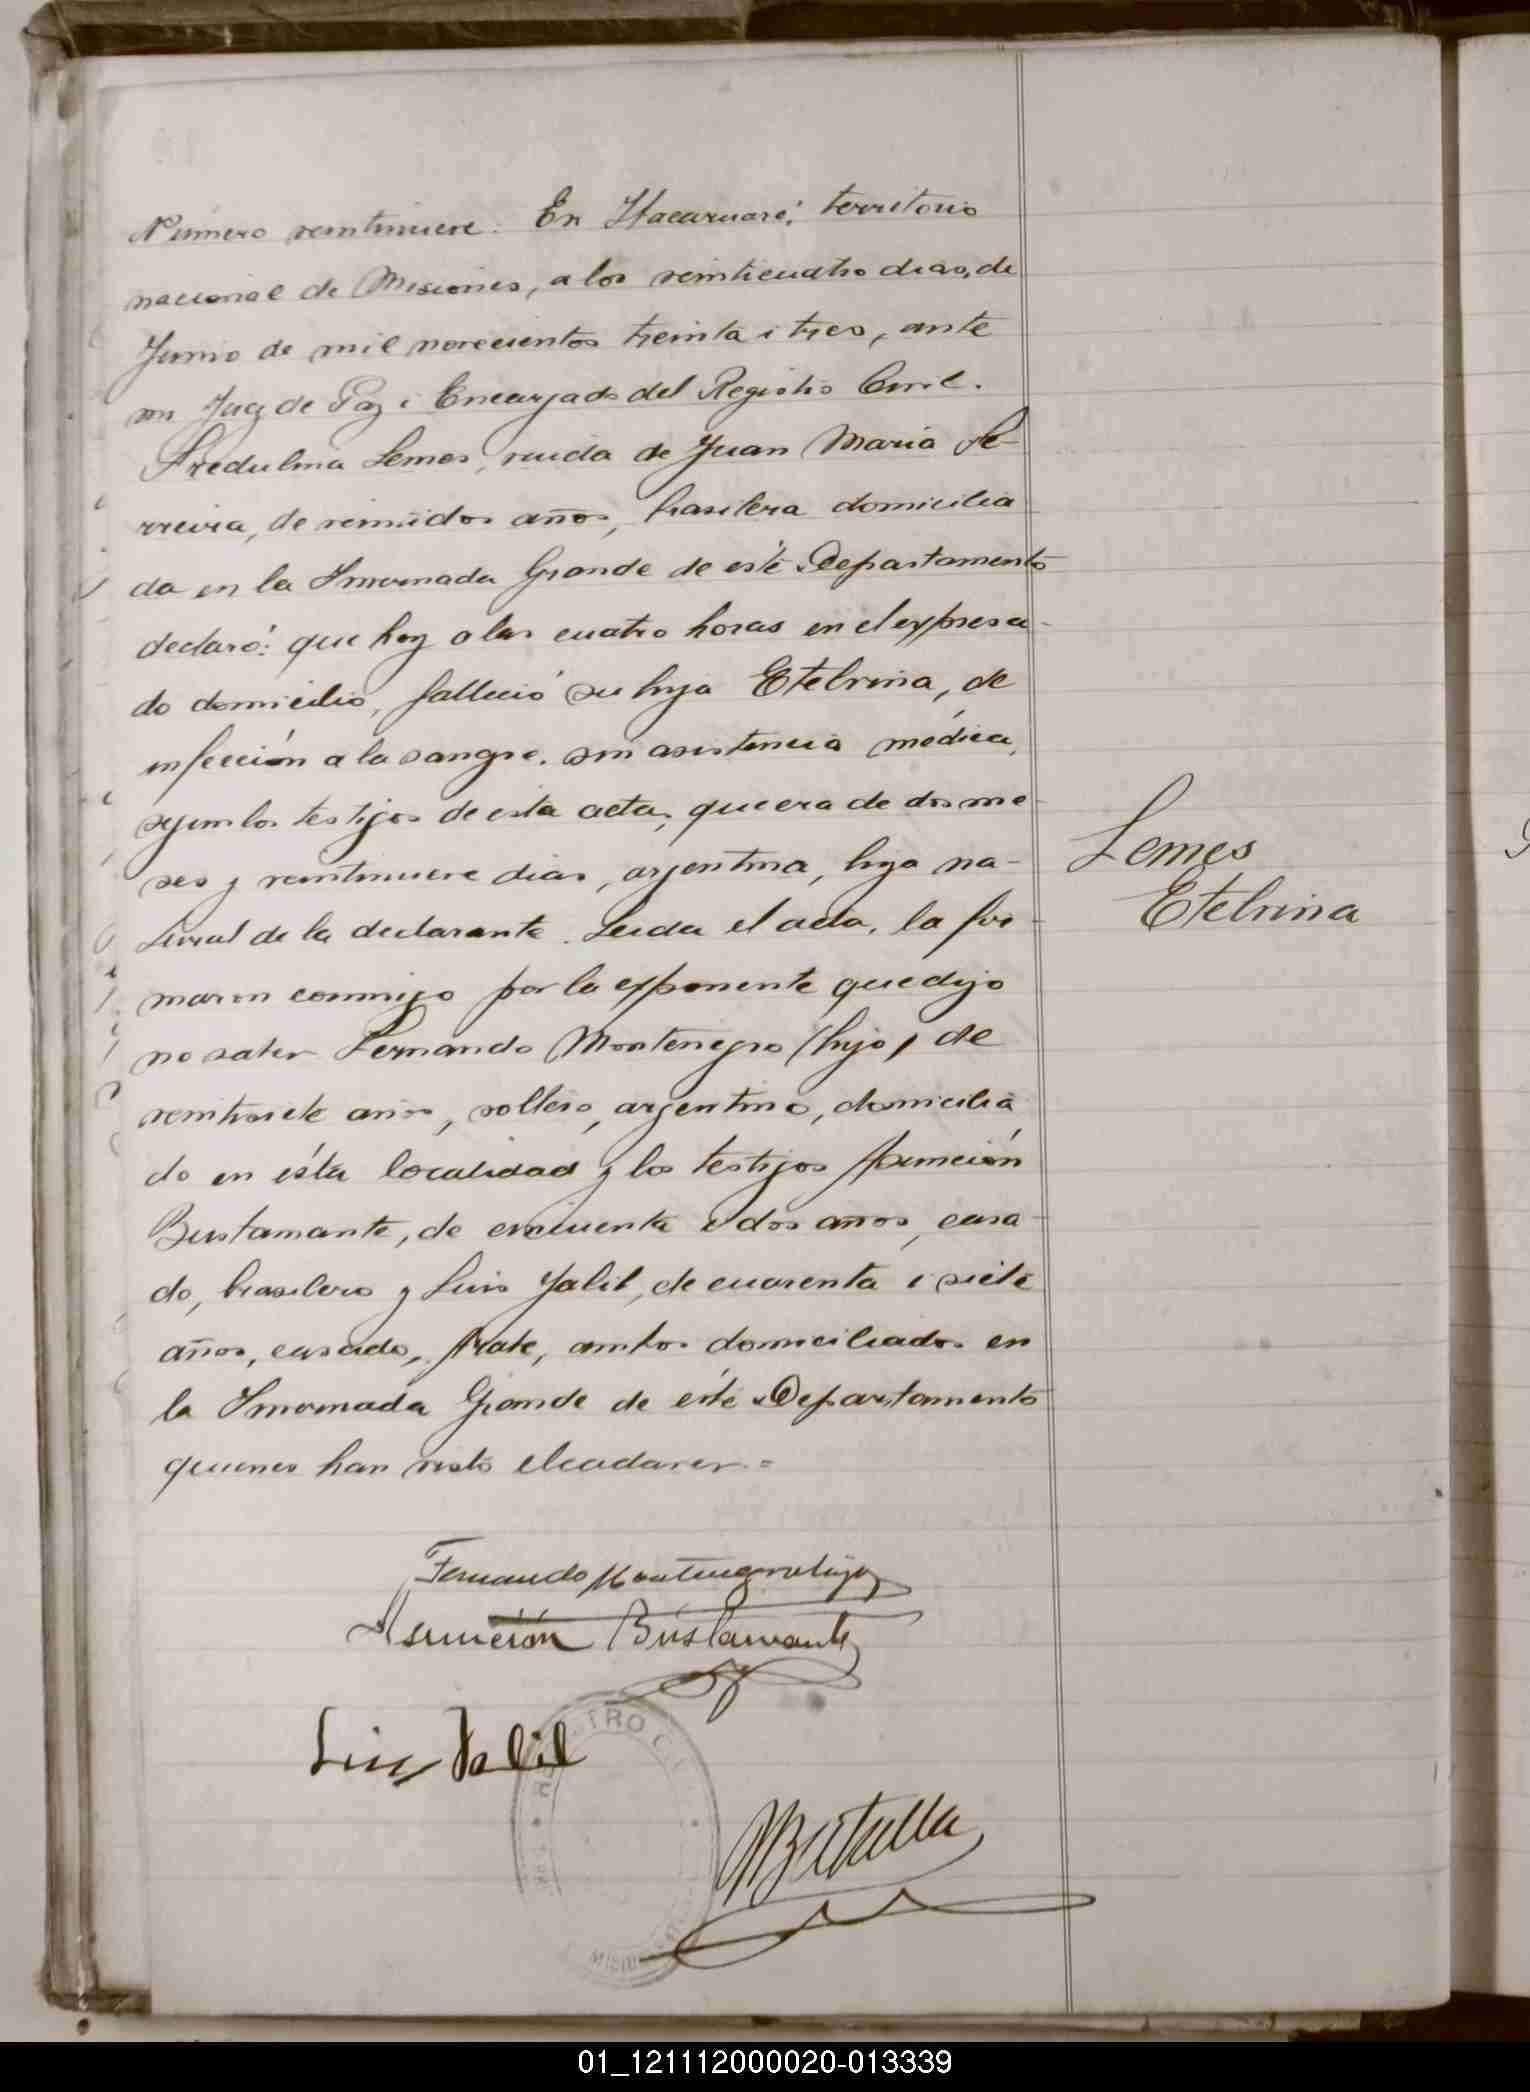 Número veintinueve. En Itacaruaré, territorio
nacional de Misiones, a los veinticuatro dias, de
Junio de mil novecientos treinta i tres, ante
mi Juez de Paz i Encargado del Registro Civil.
Lemes, viuda de Juan Maria Fe-
rreira, de veintidos años, brasilera domicilia
da en la Invernada Grande de este Departamento
declaró: que hoy a las cuatro horas en el expresa-
do domicilio, falleció su hija Etelvina, de
infección a la sangre. sin asistencia médica,
segun los testigos de esta acta, que era de dos me-
ses y veintinueve dias, argentina, hija na-
tural de la declarante. Leida el acta, la fir-
maron conmigo por la exponente que dijo
no saber Fernando Montenegro (hijo) de
veintisiete años, soltero, argentino, domicilia
do en ésta localidad y los testigos Asunción
Bustamante, de cincuenta i dos años, casa-
do, brasilero y Luis Jalil, de cuarenta i siete
años, casado, árabe, ambos domiciliados en
la Invernada Grande de este Departamento
quienes han visto el cadaver.=
Lemes
Etelvina
Fernando Montenegro hijo
Asunción Bustamante
Luis Jalil
01_121112000020-013339